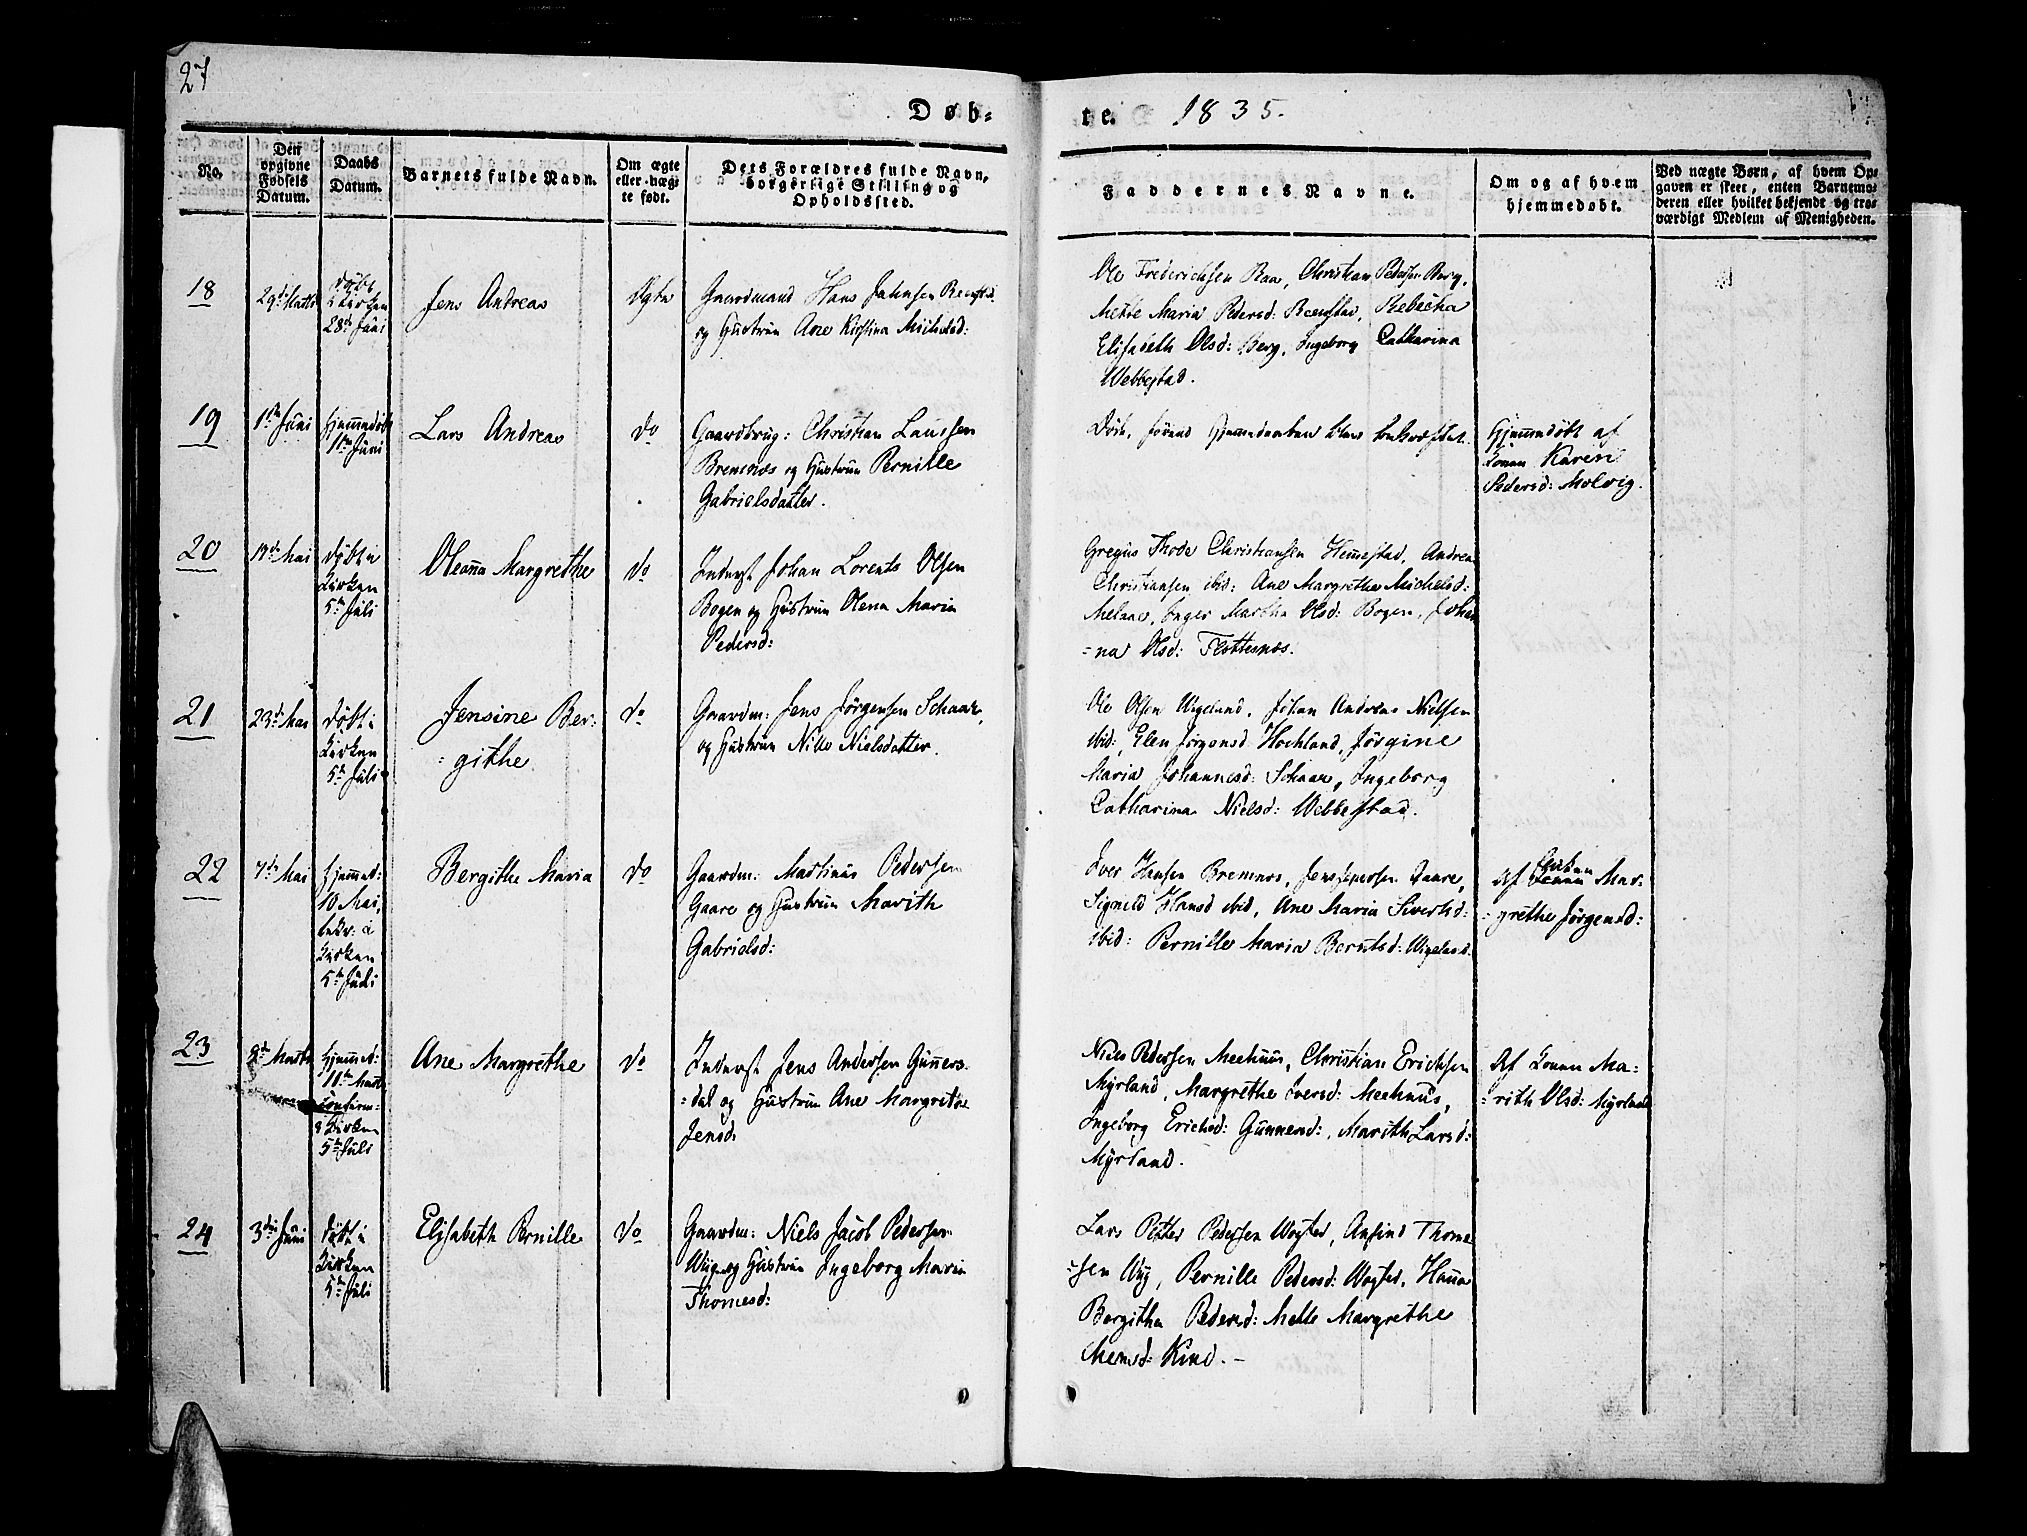 27
Døb=
te. 1835.
No.
Den
opgivne
Fødsels
Datum.
Daabs
Datum.
Barnets fulde Navn.
Om ægte
eller uæg=
te født.
Dets Forældres fulde Navn,
borgerlige Stilling og
Opholdssted.
Faddernes Navne.
Om og af hvem
hjemmedøbt.
Ved uægte Børn, af hvem Op=
gaven er skeet, enten Barnemo=
deren eller hvilket bekjendt og tro=
værdigt Medlem af Menigheden.
18
29de Marts
døbt
i Kirken
28de Juni
Jens Andreas
Ægte
Gaardmand Hans Jahnsen
og Hustrue Ane Kirstina
Ole Frederichsen Raa, Christian Pedersen Berg,
Mette Maria Pedersd: Rebecka
Elisabeth Olsd: Berg, Ingeborg Catharina
Webbestad.
19
1ste Juni
Hjemmedøbt
1ste Juni
Lars Andreas
do
Gaardbrug: Christian Laussen
Bremnæs og Hustrue Pernille
Gabrielsdatter.
Døde, førend Hjemmedaaben blev bekræftet.
Hjemmedøbt af
Konen Karen
Pedersd: Molvig.
20
13de Mai
døbt i
Kirken
5te Juli
Oleana Margrethe
do
Inderst Johan Lorents Olsen
Bogen og Hustrue Olena Maria
Pedersd:
Gregus Thode Christiansen Hemestad, Andrea
Christiansen ibid: Ane Margrethe Michelsd:
Melaae, Inger Martha Olsd: Bogen, Johan
=na Olsd: Flottenæs.
21
23de Mai
døbt i
Kirken
5te Juli
Jensine Ber=
=githe
do
Gaardm: Jens Jørgensen Schaar,
og Hustrue Nille Nielsdatter.
Ole Olsen Wigelund, Johan Andreas Nielsen
ibid:, Elen Jørgensd: Hochland, Jørgine
Maria Johannesd: Schaar, Ingeborg
Catharina Nielsd: Webbestad.
22
7de Mai
Hjemmed:
10 Mai,
bekr: i
Kirken
5te Juli
Bergithe Maria
do
Gaardm: Martinus Pedersen
Gaare og Hustrue Marith
Gabrielsd:
Iver Hansen Bremnes, Jens Gaare,
Signild Hansd ibid, Ane Maria Sivertsd:
ibid: Pernille Maria Berntsd: Wigelund.
Af Mar=
=grethe Jørgensd:
23
8de Marts
Hjemmed:
11te Marts
Confirm:
i Kirken
5te Juli
Ane Margrethe
do
Inderst Jens Andersen Guners=
=dal og Hustrue Ane Margrethe
Jensd:
Niels Pedersen Meehuus, Christian Erichsen
Myrland, Margrethe Iversd: Meehuus,
Ingeborg Erichsd: Marith Larsd:
Myrland.
Af Konen Ma=
=rith Olsd: Myrland
24
3die Juni
døbt i
Kirken
5te Juli
Elisabeth Pernille
do
Gaardm: Niels Jacob Pedersen
Wiig og Hustrue Ingeborg Maria
Thomesd:
Lars Petter Pedersen Wogted, Anfind Thome
=sen Wiig, Pernille Pedersd: Wogted, Hanna
Bergitha Pedersd: Mette Margrethe
Kind. –